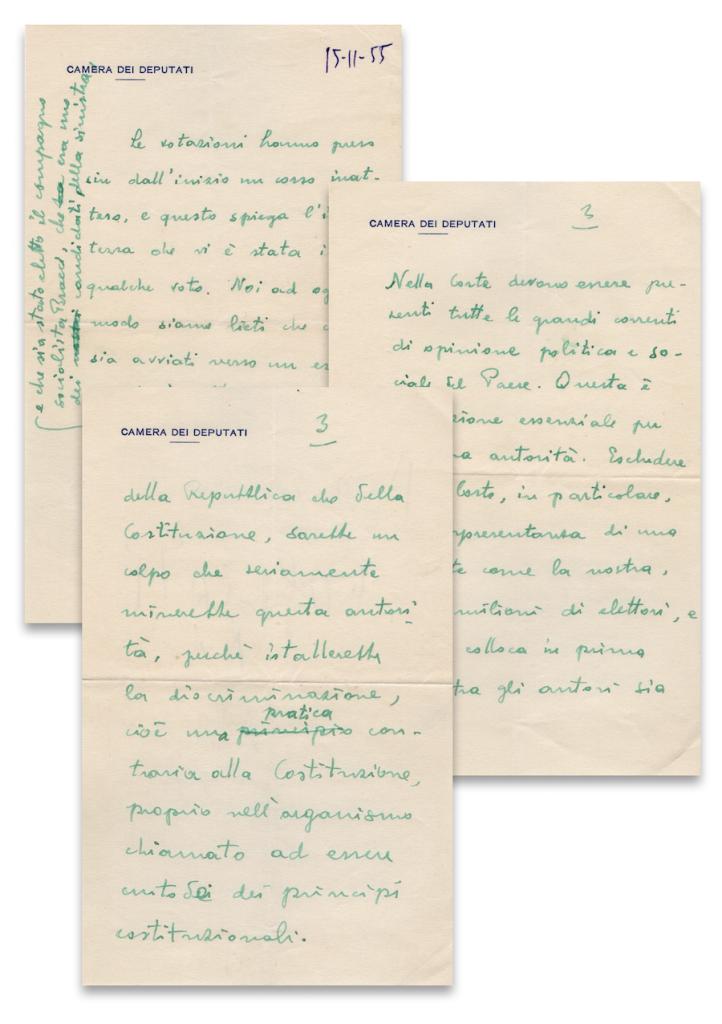 CAMERA DEI DEPUTATI
15-11-55
Le votazioni hanno preso
sin dall'inizio un corso inat-
teso, e questo spiega l'i
tezza che vi è stata i
qualche voto. Noi ad og
modo siamo lieti che
sia avviati verso un es
e che sia stato eletto il compagno
socialista Bracci, che era uno
dei candidati della sinistra
CAMERA DEI DEPUTATI
3
Nella Corte devono essere pre-
senti tutte le grandi correnti
di opinione politica e so-
ciale del Paese. Questa è
zione essenziale per
a autorità. Escludere
Corte, in particolare,
ppresentanza di una
te come la nostra,
milioni di elettori, e
colloca in prima
tra gli autori sia
CAMERA DEI DEPUTATI
3
della Repubblica che della
Costituzione, sarebbe un
colpo che seriamente
minerebbe questa autori-
tà, perché istallerebbe
la discriminazione,
pratica
cioè una principio con-
traria alla Costituzione,
proprio nell'organismo
chiamato ad essere
custode dei principi
costituzionali.